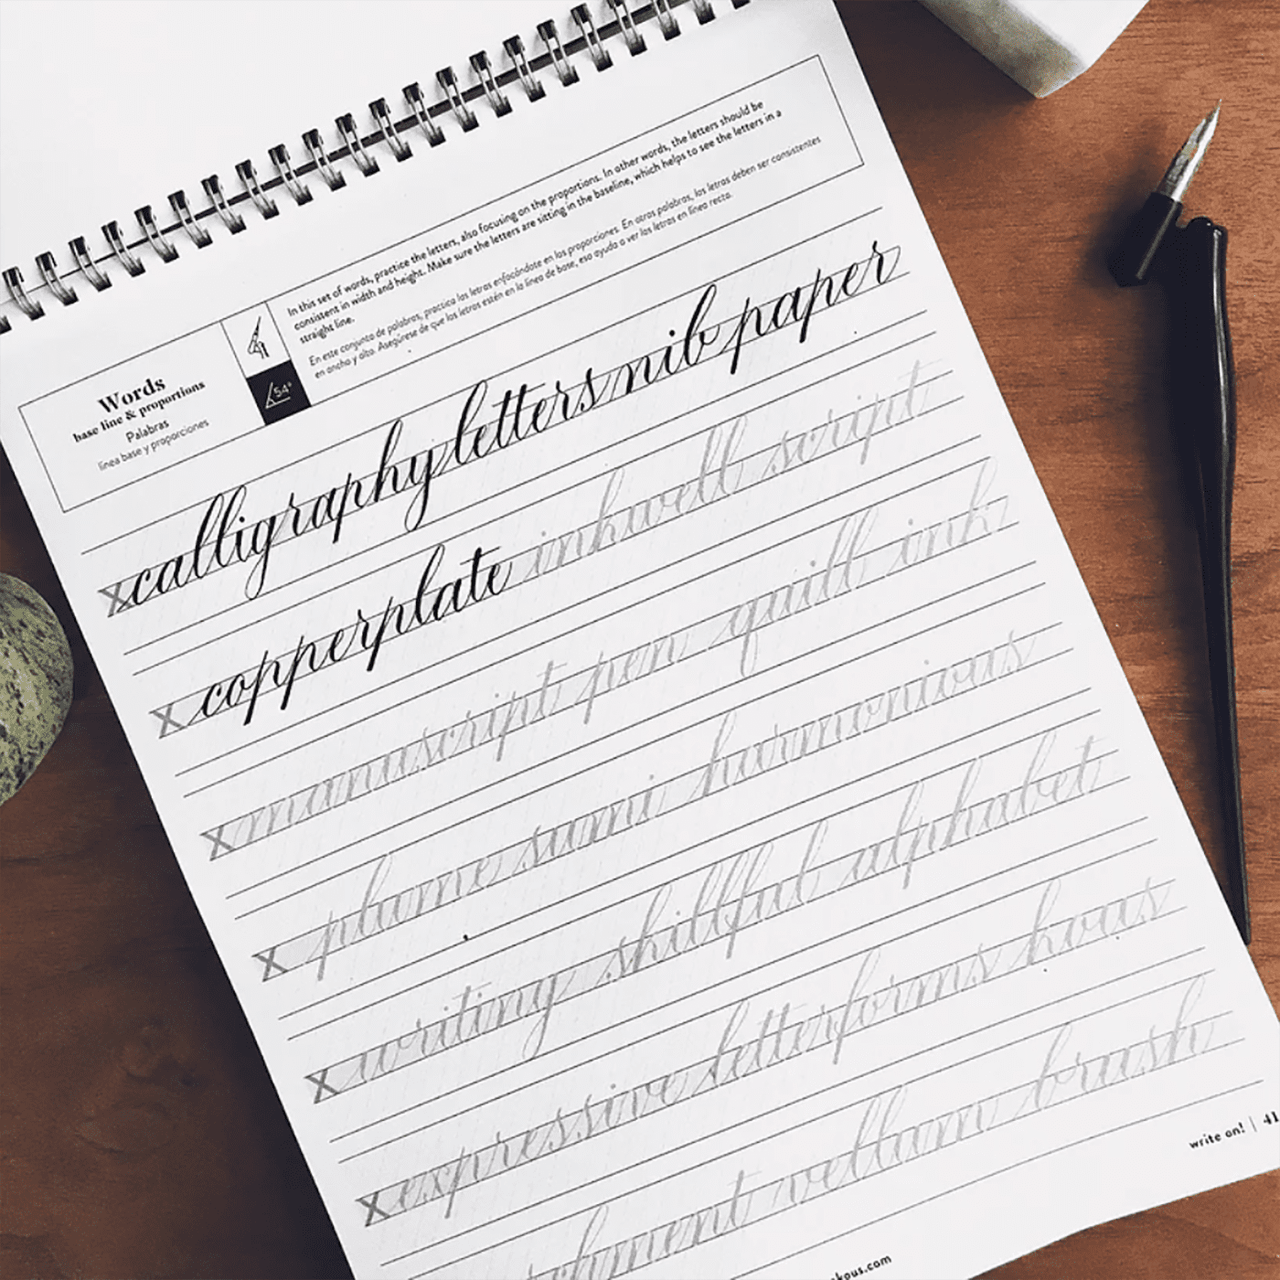 Words
base line & proportions
Palabras
línea base y proporciones
54°
In this set of words, practice the letters, also focusing on the proportions. In other words, the letters should be
consistent in width and height. Make sure the letters are sitting in the baseline, which helps to see the letters in a
straight line.
En este conjunto de palabras, practica las letras enfocándote en las proporciones. En otras palabras, las letras deben ser consistentes
en ancho y alto. Asegúrese de que las letras estén en la línea de base, eso ayuda a ver las letras en línea recta.
x calligraphy letters nib paper
x copperplate inkwell script
x manuscript pen quill ink
x plume sumi harmonious
x writing skillful alphabet
x expressive letterforms
chment vellum brush
write on! | 41
kous.com